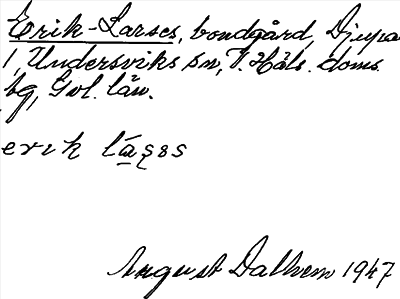 Erik-Larses, bondgård, Djupa
1, Undersviks sn, V. Häls. doms.
bg, Gvl. län.
erik lạ̄şəs
August Dalhem 1947